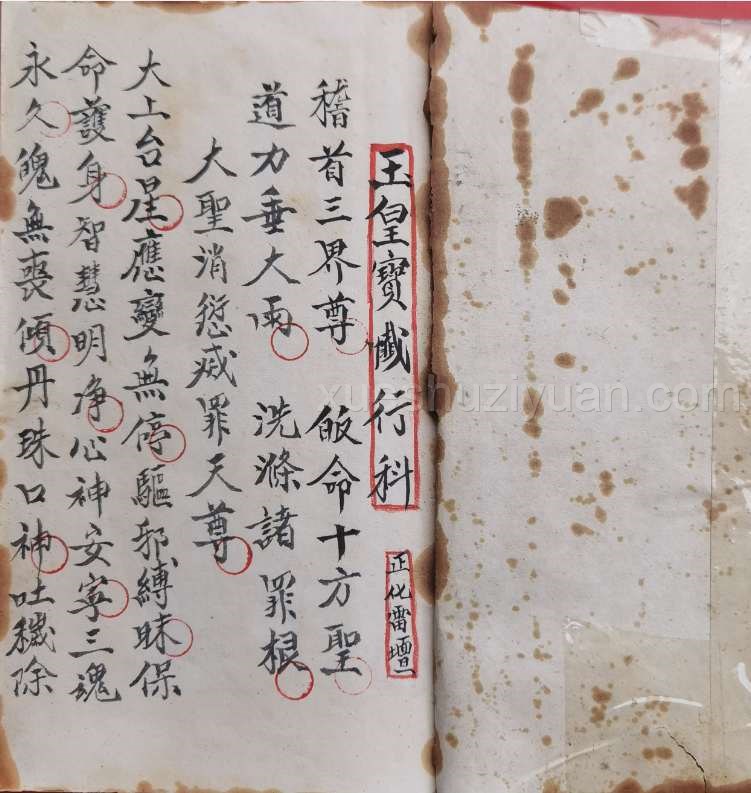 玉皇寶懺行科
正化雷壇
稽首三界尊 皈命十方聖
道力垂大雨 洗滌諸罪根
大聖消愆烕罪天尊
大上台星應變無停驅邪縛昧保
命護身智慧明浄心神安寧三魂
永久魄無喪傾丹珠口神吐穢除
xueshuziyuan.com